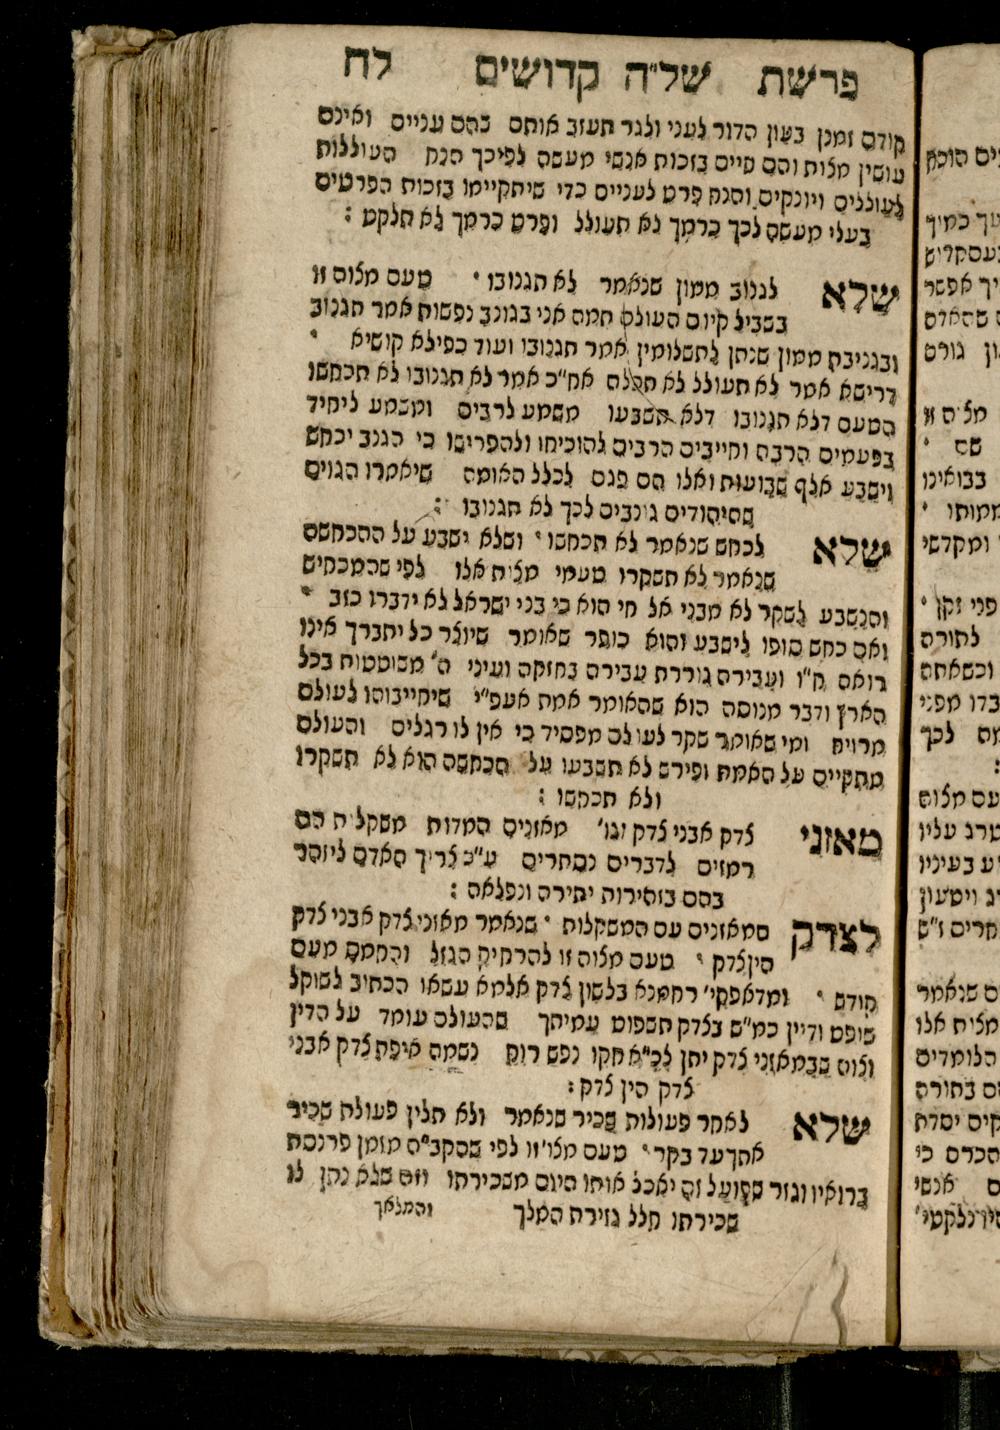 פרשת של״ה קדושים לח
קודם זמנן בעון הדור לעני ולגר תעזב אותם בהם עניים ואינם
עושין מצות והם חיים בזכות אנשי מעשה לפיכך הנח העוללות
לעוללים ויונקים וסנה פרט לעניים כדי שיתקיימו בזכות הפרטים
בעלי מעשה לכך כרמך לא תעולל ופרט כרמך לא תלקט :
שלא לגנוב ממון שנאמר לא תגנובו ׳ טעם מצוה זו
בשביל קיום העולם תמה אני בגונב נפשות אמר תגנוב
ובגניבת ממון שנתן לתשלומין אמר תגנובו ועוד כפילא קושיא ׳
דרישא אמר לא תעולל לא תכלה אח״כ אמר לא תגנובו לא תכחשו
הטעם דלא תגנובו דלא תשבעו משמע לרבים ומשמע ליחיד
בפעמים הרבה וחייבים הרבים להוכיחו ולהפרישו כי הגנב יכחש
וישבע אלף שבועות ואלו הם פגם לכלל האומה שיאמרו הגוים
שהיהודים גונבים לכך לא תגנובו :
שלא לכחש שנאמר לא תכחשו ׳ ושלא ישבע על ההכחשה
שנאמר לא תשקרו טעמי מצות אלו לפי שהמכחיש
והנשבע לשקר לא מבני אל חי הוא כי בני ישראל לא ידברו כזב ׳
ואם כחש סופו לישבע והוא כופר שאומר שיוצר כל יחברך אינו
רואה ח״ו ועבירה גוררת עבירה בחזקה ועיני ה׳ משוטטות בכל
הארץ ודבר מנוסה הוא שהאומר אמת אעפ״י שיחייבוהו לעולם
מרויח ומי שאומר שקר לעולם מפסיד כי אין לו רגלים והעולם
מתקיים על האמת ופירש לא תשבעו על הכחשה הוא לא תשקרו
ולא תכחשו :
מאזני צדק אבני צדק וגו׳ מאזנים המדות משקלות הם
רמזים לדברים נסתרים ע״כ צריך האדם ליזהר
בהם בזהירות יתירה ונפלאה :
לצדק המאזנים עם המשקלות ׳ שנאמר מאזני צדק אבני צדק
הין צדק ׳ טעם מצוה זו להרחיק הגזל והחמס מעם
קודש ׳ ומדאפקי׳ רחמנא בלשון צדק אלמא עשאו הכתיב לשוקל
שופט ודיין כמ״ש בצדק תשפוט עמיתך שהעולם עומד על הדין
וצוה שבמאזני צדק יתן לכ״א חקו נפש רוח נשמה איפת צדק אבני
צדק הין צדק :
שלא לאחר פעולות שכיר שנאמר ולא תלין פעולת שכיר
אתך עד בקר ׳ טעם מצו׳ זו לפי שהקב״ה מזמן פרנסת
ברואיו וגזר שפועל זה יאכל אותו היום משכירתו וזה שלא נתן לו
שכירתו חלל גזירת המלך והמלאך